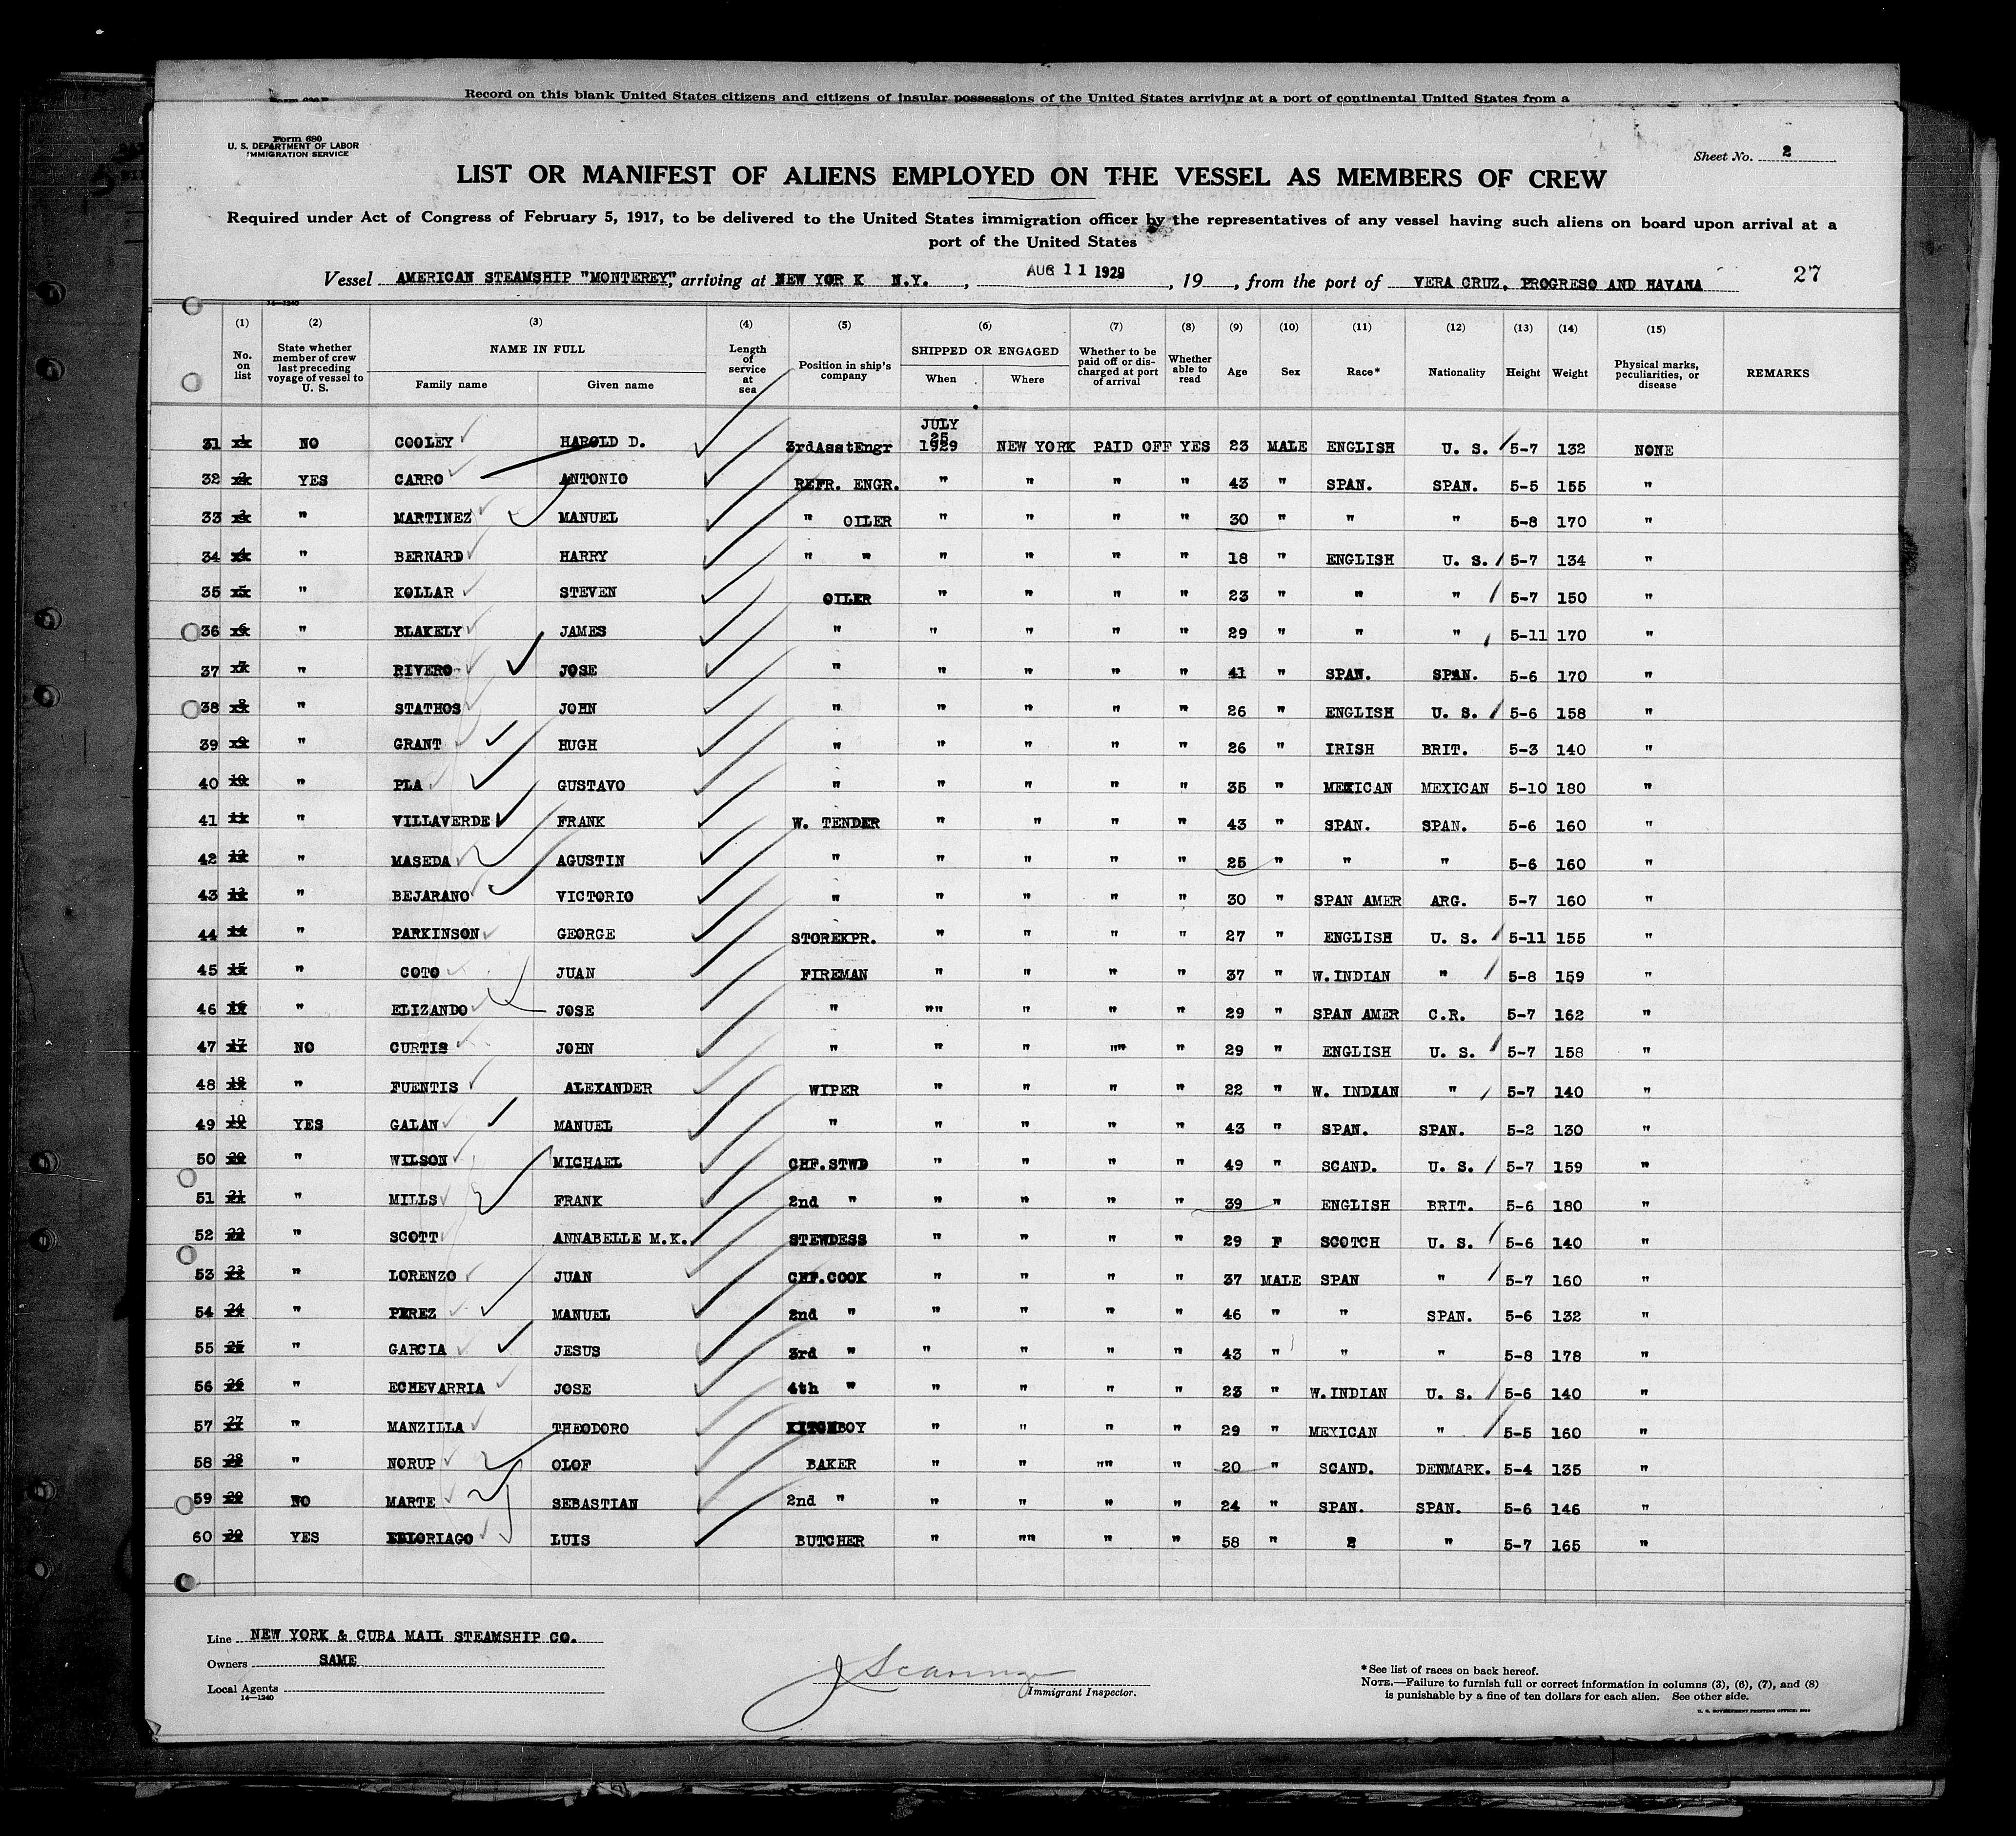 Record on this blank United States citizens and citizens of insular possessions of the United States arriving at a port of continental United States from a
Form 680
U. S. DEPARTMENT OF LABOR
IMMIGRATION SERVICE
Sheet No. 2
LIST OR MANIFEST OF ALIENS EMPLOYED ON THE VESSEL AS MEMBERS OF CREW
Required under Act of Congress of February 5, 1917, to be delivered to the United States immigration officer by the representatives of any vessel having such aliens on board upon arrival at a
port of the United States
Vessel AMERICAN STEAMSHIP "MONTEREY", arriving at NEW YOR K N.Y. , AUG 11 1929 , 19 , from the port of VERA CRUZ, PROGRESO AND HAVANA 27
14—1240
(1) (2) (3) (4) (5) (6) (7) (8) (9) (10) (11) (12) (13) (14) (15)
No. on list State whether member of crew last preceding voyage of vessel to U. S. NAME IN FULL Family name Given name Length of service at sea Position in ship's company SHIPPED OR ENGAGED When Where Whether to be paid off or discharged at port of arrival Whether able to read Age Sex Race* Nationality Height Weight Physical marks, peculiarities, or disease REMARKS
31 1 NO COOLEY HAROLD D. 3rdAsstEngr JULY 25 1929 NEW YORK PAID OFF YES 23 MALE ENGLISH U. S. 5-7 132 NONE
32 2 YES CARRO ANTONIO REFR. ENGR. " " " " 43 " SPAN. SPAN. 5-5 155 "
33 3 " MARTINEZ MANUEL " OILER " " " " 30 " " " 5-8 170 "
34 4 " BERNARD HARRY " " " " " " 18 " ENGLISH U. S. 5-7 134 "
35 5 " KOLLAR STEVEN OILER " " " " 23 " " " 5-7 150 "
36 6 " BLAKELY JAMES " " " " " 29 " " " 5-11 170 "
37 7 " RIVERO JOSE " " " " " 41 " SPAN. SPAN. 5-6 170 "
38 8 " STATHOS JOHN " " " " " 26 " ENGLISH U. S. 5-6 158 "
39 9 " GRANT HUGH " " " " " 26 " IRISH BRIT. 5-3 140 "
40 10 " PLA GUSTAVO " " " " " 35 " MEXICAN MEXICAN 5-10 180 "
41 11 " VILLAVERDE FRANK W. TENDER " " " " 43 " SPAN. SPAN. 5-6 160 "
42 12 " MASEDA AGUSTIN " " " " " 25 " " " 5-6 160 "
43 13 " BEJARANO VICTORIO " " " " " 30 " SPAN AMER ARG. 5-7 160 "
44 14 " PARKINSON GEORGE STOREKPR. " " " " 27 " ENGLISH U. S. 5-11 155 "
45 15 " COTO JUAN FIREMAN " " " " 37 " W.INDIAN " 5-8 159 "
46 16 " ELIZANDO JOSE " "" " " " 29 " SPAN AMER C.R. 5-7 162 "
47 17 NO CURTIS JOHN " " " "" " 29 " ENGLISH U. S. 5-7 158 "
48 18 " FUENTIS ALEXANDER WIPER " " " " 22 " W. INDIAN " 5-7 140 "
49 19 YES GALAN MANUEL " " " " " 43 " SPAN. SPAN. 5-2 130 "
50 20 " WILSON MICHAEL CHF.STWD " " " " 49 " SCAND. U. S. 5-7 159 "
51 21 " MILLS FRANK 2nd " " " " " 39 " ENGLISH BRIT. 5-6 180 "
52 22 " SCOTT ANNABELLE M.K. STEWDESS " " " " 29 F SCOTCH U. S. 5-6 140 "
53 23 " LORENZO JUAN CHF.COOK " " " " 37 MALE SPAN " 5-7 160 "
54 24 " PEREZ MANUEL 2nd " " " " " 46 " " SPAN. 5-6 132 "
55 25 " GARCIA JESUS 3rd " " " " " 43 " " " 5-8 178 "
56 26 " ECHEVARRIA JOSE 4th " " " " " 23 " W.INDIAN U. S. 5-6 140 "
57 27 " MANZILLA THEODORO KITCHBOY " " " " 29 " MEXICAN " 5-5 160 "
58 28 " NORUP OLOF BAKER " " "" " 20 " SCAND. DENMARK. 5-4 135 "
59 29 NO MARTE SEBASTIAN 2nd " " " " " 24 " SPAN. SPAN. 5-6 146 "
60 30 YES LUIS BUTCHER " "" " " 58 " 2 " 5-7 165 "
Line NEW YORK & CUBA MAIL STEAMSHIP CO.
Owners SAME
Local Agents
14—1240
Immigrant Inspector.
*See list of races on back hereof.
NOTE.—Failure to furnish full or correct information in columns (3), (6), (7), and (8)
is punishable by a fine of ten dollars for each alien. See other side.